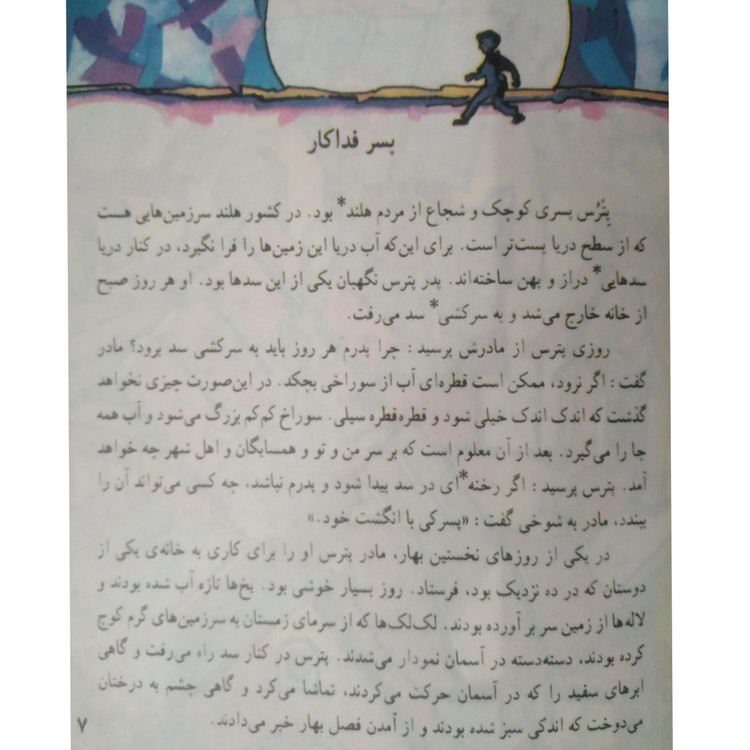 پسر فداکار
پِتْرُس پسری کوچک و شجاع از مردم هلند* بود. در کشور هلند سرزمین‌هایی هست
که از سطح دریا پست‌تر است. برای این‌که آب دریا این زمین‌ها را فرا نگیرد، در کنار دریا
سدهایی* دراز و پهن ساخته‌اند. پدر پترس نگهبان یکی از این سدها بود. او هر روز صبح
از خانه خارج می‌شد و به سرکشی* سد می‌رفت.
روزی پترس از مادرش پرسید : چرا پدرم هر روز باید به سرکشی سد برود؟ مادر
گفت : اگر نرود، ممکن است قطره‌ای آب از سوراخی بچکد. در این‌صورت چیزی نخواهد
گذشت که اندک اندک خیلی شود و قطره‌قطره سیلی. سوراخ کم‌کم بزرگ می‌شود و آب همه
جا را می‌گیرد. بعد از آن معلوم است که بر سر من و تو و همسایگان و اهل شهر چه خواهد
آمد. پترس پرسید : اگر رخنه*ای در سد پیدا شود و پدرم نباشد، چه کسی می‌تواند آن را
ببندد، مادر به شوخی گفت : «پسرکی با انگشت خود.»
در یکی از روزهای نخستین بهار، مادر پترس او را برای کاری به خانه‌ی یکی از
دوستان که در ده نزدیک بود، فرستاد. روز بسیار خوشی بود. یخ‌ها تازه آب شده بودند و
لاله‌ها از زمین سر بر آورده بودند. لک‌لک‌ها که از سرمای زمستان به سرزمین‌های گرم کوچ
کرده بودند، دسته‌دسته در آسمان نمودار می‌شدند. پترس در کنار سد راه می‌رفت و گاهی
ابرهای سفید را که در آسمان حرکت می‌کردند، تماشا می‌کرد و گاهی چشم به درختان
می‌دوخت که اندکی سبز شده بودند و از آمدن فصل بهار خبر می‌دادند.
۷